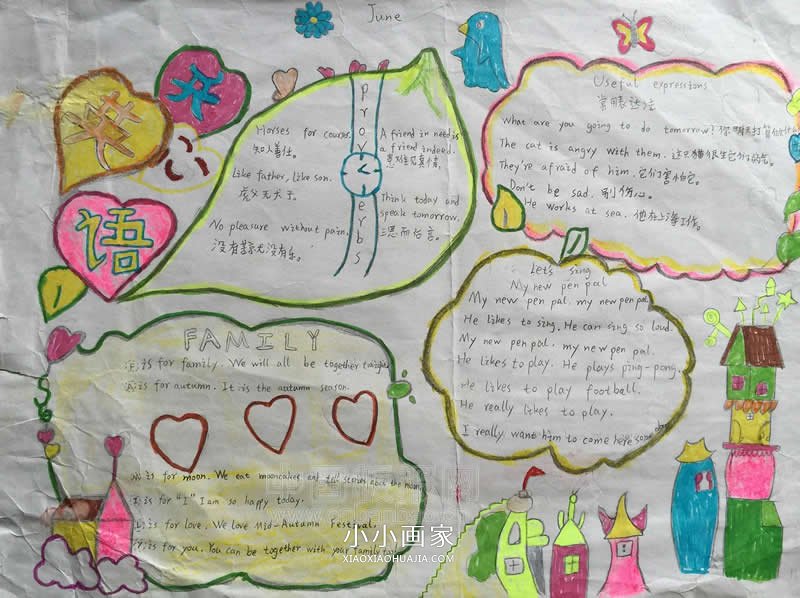 June
英
天
语
Proverbs
Horses for courses
知人善任。
Like father, like son.
虎父无犬子。
No pleasure without pain.
没有苦就无没有乐。
A friend in need is
a friend indeed.
患难见真情。
Think today and
speak tomorrow.
三思而后言。
Useful expressions
常用表达法
What are you going to do tomorrow? 你明天打算做什么
The cat is angry with them. 这只猫很生它们的气。
They're afraid of him. 它们害怕它。
Don't be sad. 别伤心。
He works at sea. 他在上海工作。
Let's sing
My new pen pal
My new pen pal, my new pen pal.
He likes to sing. He can sing so loud.
My new pen pal, my new pen pal.
He likes to play. He plays ping-pong.
He likes to play football.
He really likes to play.
I really want him to come here some day
FAMILY
F is for family. We will all be together tonight
A is for autumn. It is the autumn season.
M is for moon. We eat mooncakes and tell stories about the moon
I is for "I" I am so happy today.
L is for love. We love Mid-Autumn Festival.
Y is for you. You can be together with your family
小小画家
XIAOXIAOHUAJIA.COM